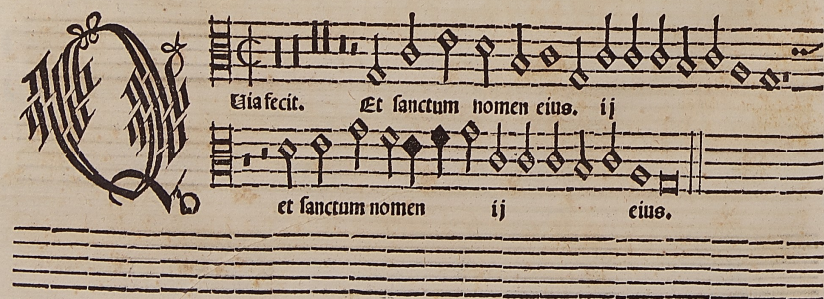 Quia fecit. Et sanctum nomen eius. ij
et sanctum nomen ij eius.